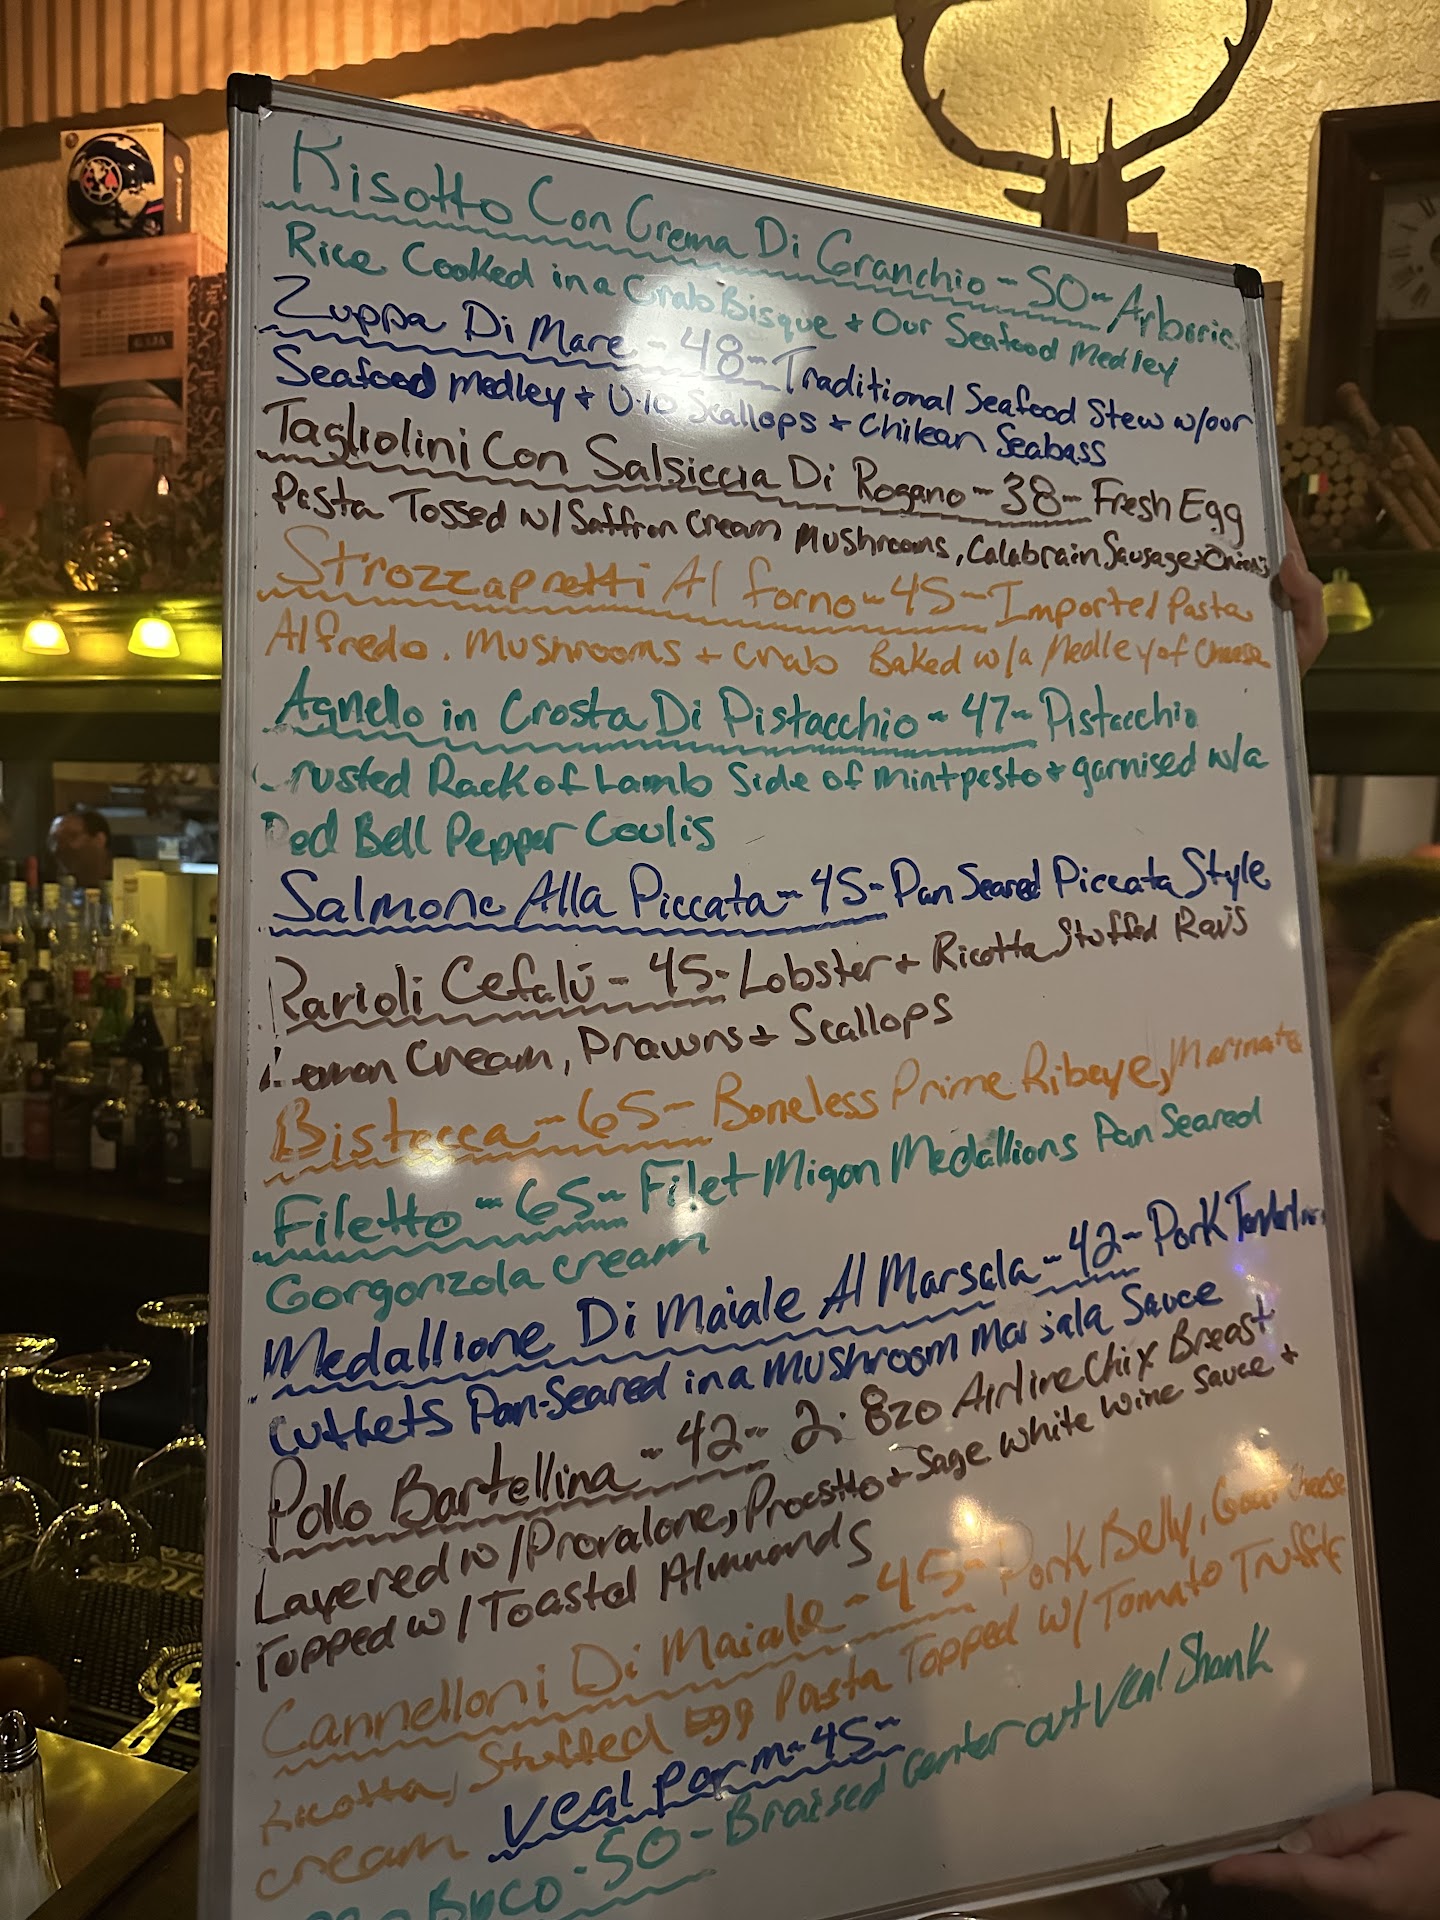 Risotto Con Crema Di Granchio - 50 - Arboric
Rice Cooked in a Crab Bisque + Our Seafood Medley
Zuppa Di Mare - 48 - Traditional Seafood Stew w/our
Seafood Medley + U-10 Scallops + Chilean Seabass
Tagliolini Con Salsiccia Di Rogano - 38 - Fresh Egg
Pasta Tossed w/ Saffron Cream Mushrooms, Calabrain Sausage + Onions
Strozzapretti Al forno - 45 - Imported Pasta
Alfredo. Mushrooms + Crab Baked w/a Medley of Cheese
Agnello in Crosta Di Pistacchio - 47 - Pistacchio
Crusted Rack of Lamb Side of mint pesto + garnised w/a
Red Bell Pepper Coulis
Salmone Alla Piccata - 45 - Pan Seared Piccata Style
Ravioli Cefalú - 45 - Lobster + Ricotta Stuffed Ravs
Lemon Cream, Prawns + Scallops
Bistecca - 65 - Boneless Prime Ribeye, Marinate
Filetto - 65 - Filet Migon Medallions Pan Seared
Gorgonzola cream
Medallione Di Maiale Al Marsala - 42 - Pork Tenderloin
Cutlets Pan-Seared in a mushroom Marsala Sauce
Pollo Bartellina - 42 - 2. 8zo Airline Chix Breast
Layered w/Provalone, Proscitto + Sage White Wine Sauce +
Topped w/ Toasted Almonds
Cannelloni Di Maiale - 45 - Pork Belly, Goat Cheese
Ricotta, Stuffed Egg Pasta Topped w/Tomato Truffle
cream Veal Parm - 45 -
Buco - 50 - Braised Center cut Veal Shank